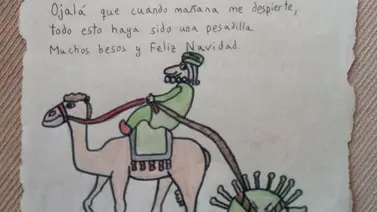 Ojalá que cuando mañana me despierte,
todo esto haya sido una pesadilla
Muchos besos y Feliz Navidad